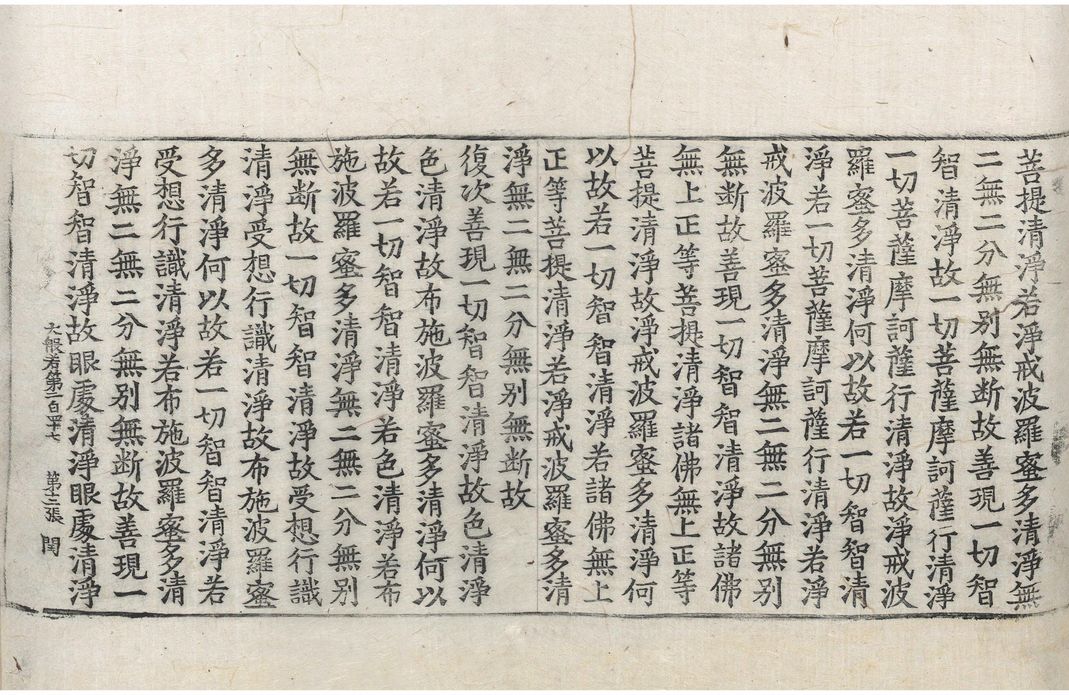 菩提清淨若淨戒波羅蜜多清淨無
二無二分無别無断故善現一切智
智清淨故一切菩薩摩訶薩行清淨
一切菩薩摩訶薩行清淨故淨戒波
羅蜜多清淨何以故若一切智智清
淨若一切菩薩摩訶薩行清淨若淨
戒波羅蜜多清淨無二無二分無别
無断故善現一切智智清淨故諸佛
無上正等菩提清淨諸佛無上正等
菩提清淨故淨戒波羅蜜多清淨何
以故若一切智智清淨若諸佛無上
正等菩提清淨若淨戒波羅蜜多清
淨無二無二分無别無断故
復次善現一切智智清淨故色清淨
色清淨故布施波羅蜜多清淨何以
故若一切智智清淨若色清淨若布
施波羅蜜多清淨無二無二分無别
無断故一切智智清淨故受想行識
清淨受想行識清淨故布施波羅蜜
多清淨何以故若一切智智清淨若
受想行識清淨若布施波羅蜜多清
淨無二無二分無别無断故善現一
切智智清淨故眼處清淨眼處清淨
大般若第二百四十七 第十二張 閏